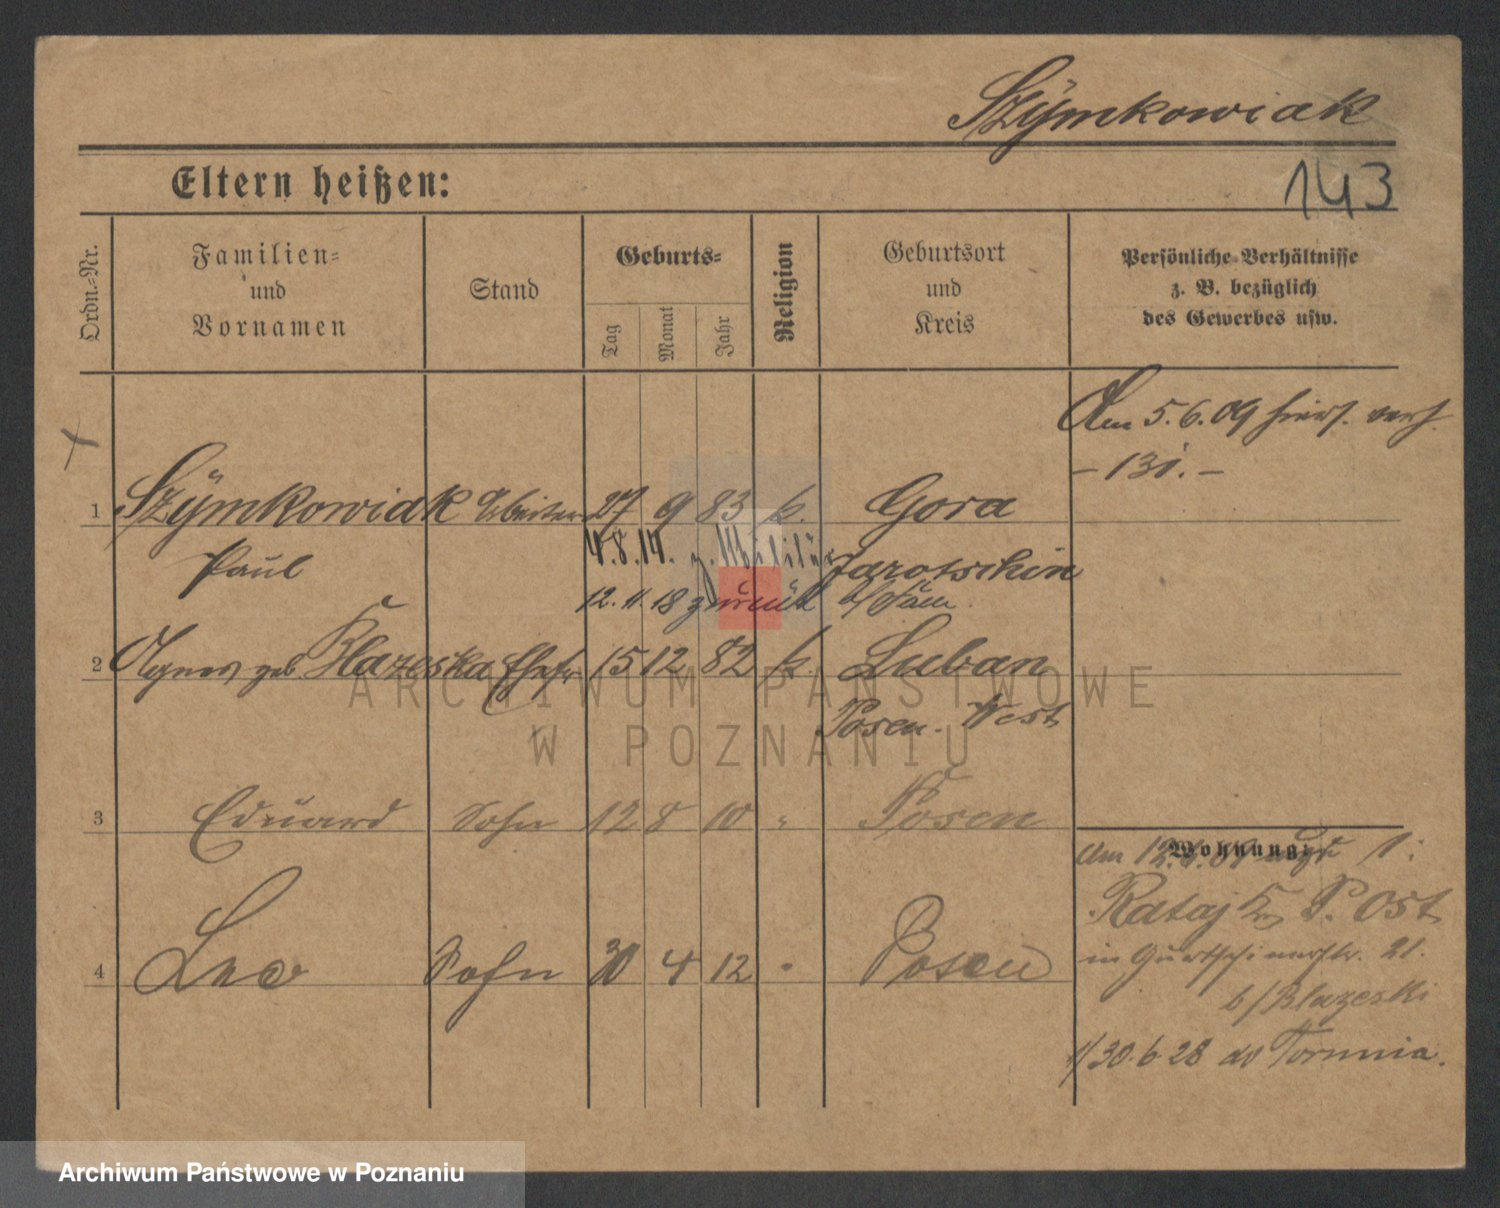 Szÿmkowiak
Eltern heißen:
143
Ordn.-Nr.
Familien-
und
Vornamen
Stand
Geburts-
Tag
Monat
Jahr
Religion
Geburtsort
und
Kreis
Persönliche Verhältnisse
z. B. bezüglich
des Gewerbes usw.
Am 5.6.09 hiers. verh.
1 Szÿmkowiak Arbeiter 27 9 83 k. Gora
Paul 4.8.14. z. Militär Jarotschin
12.11.18 zurück
2 Agnes geb. Blazeska Ehefr. 15 12 82 k. Luban
Posen-West
3 Eduard Sohn 12 8 10 " Posen
Wohnung:
Rataj Kr. P. Ost
4 Leo Sohn 30 4 12 " Posen
in Gurtschinerstr. 21.
b/ Blazeski
30.6.28 do Torunia.
ARCHIWUM PAŃSTWOWE
W POZNANIU
Archiwum Państwowe w Poznaniu